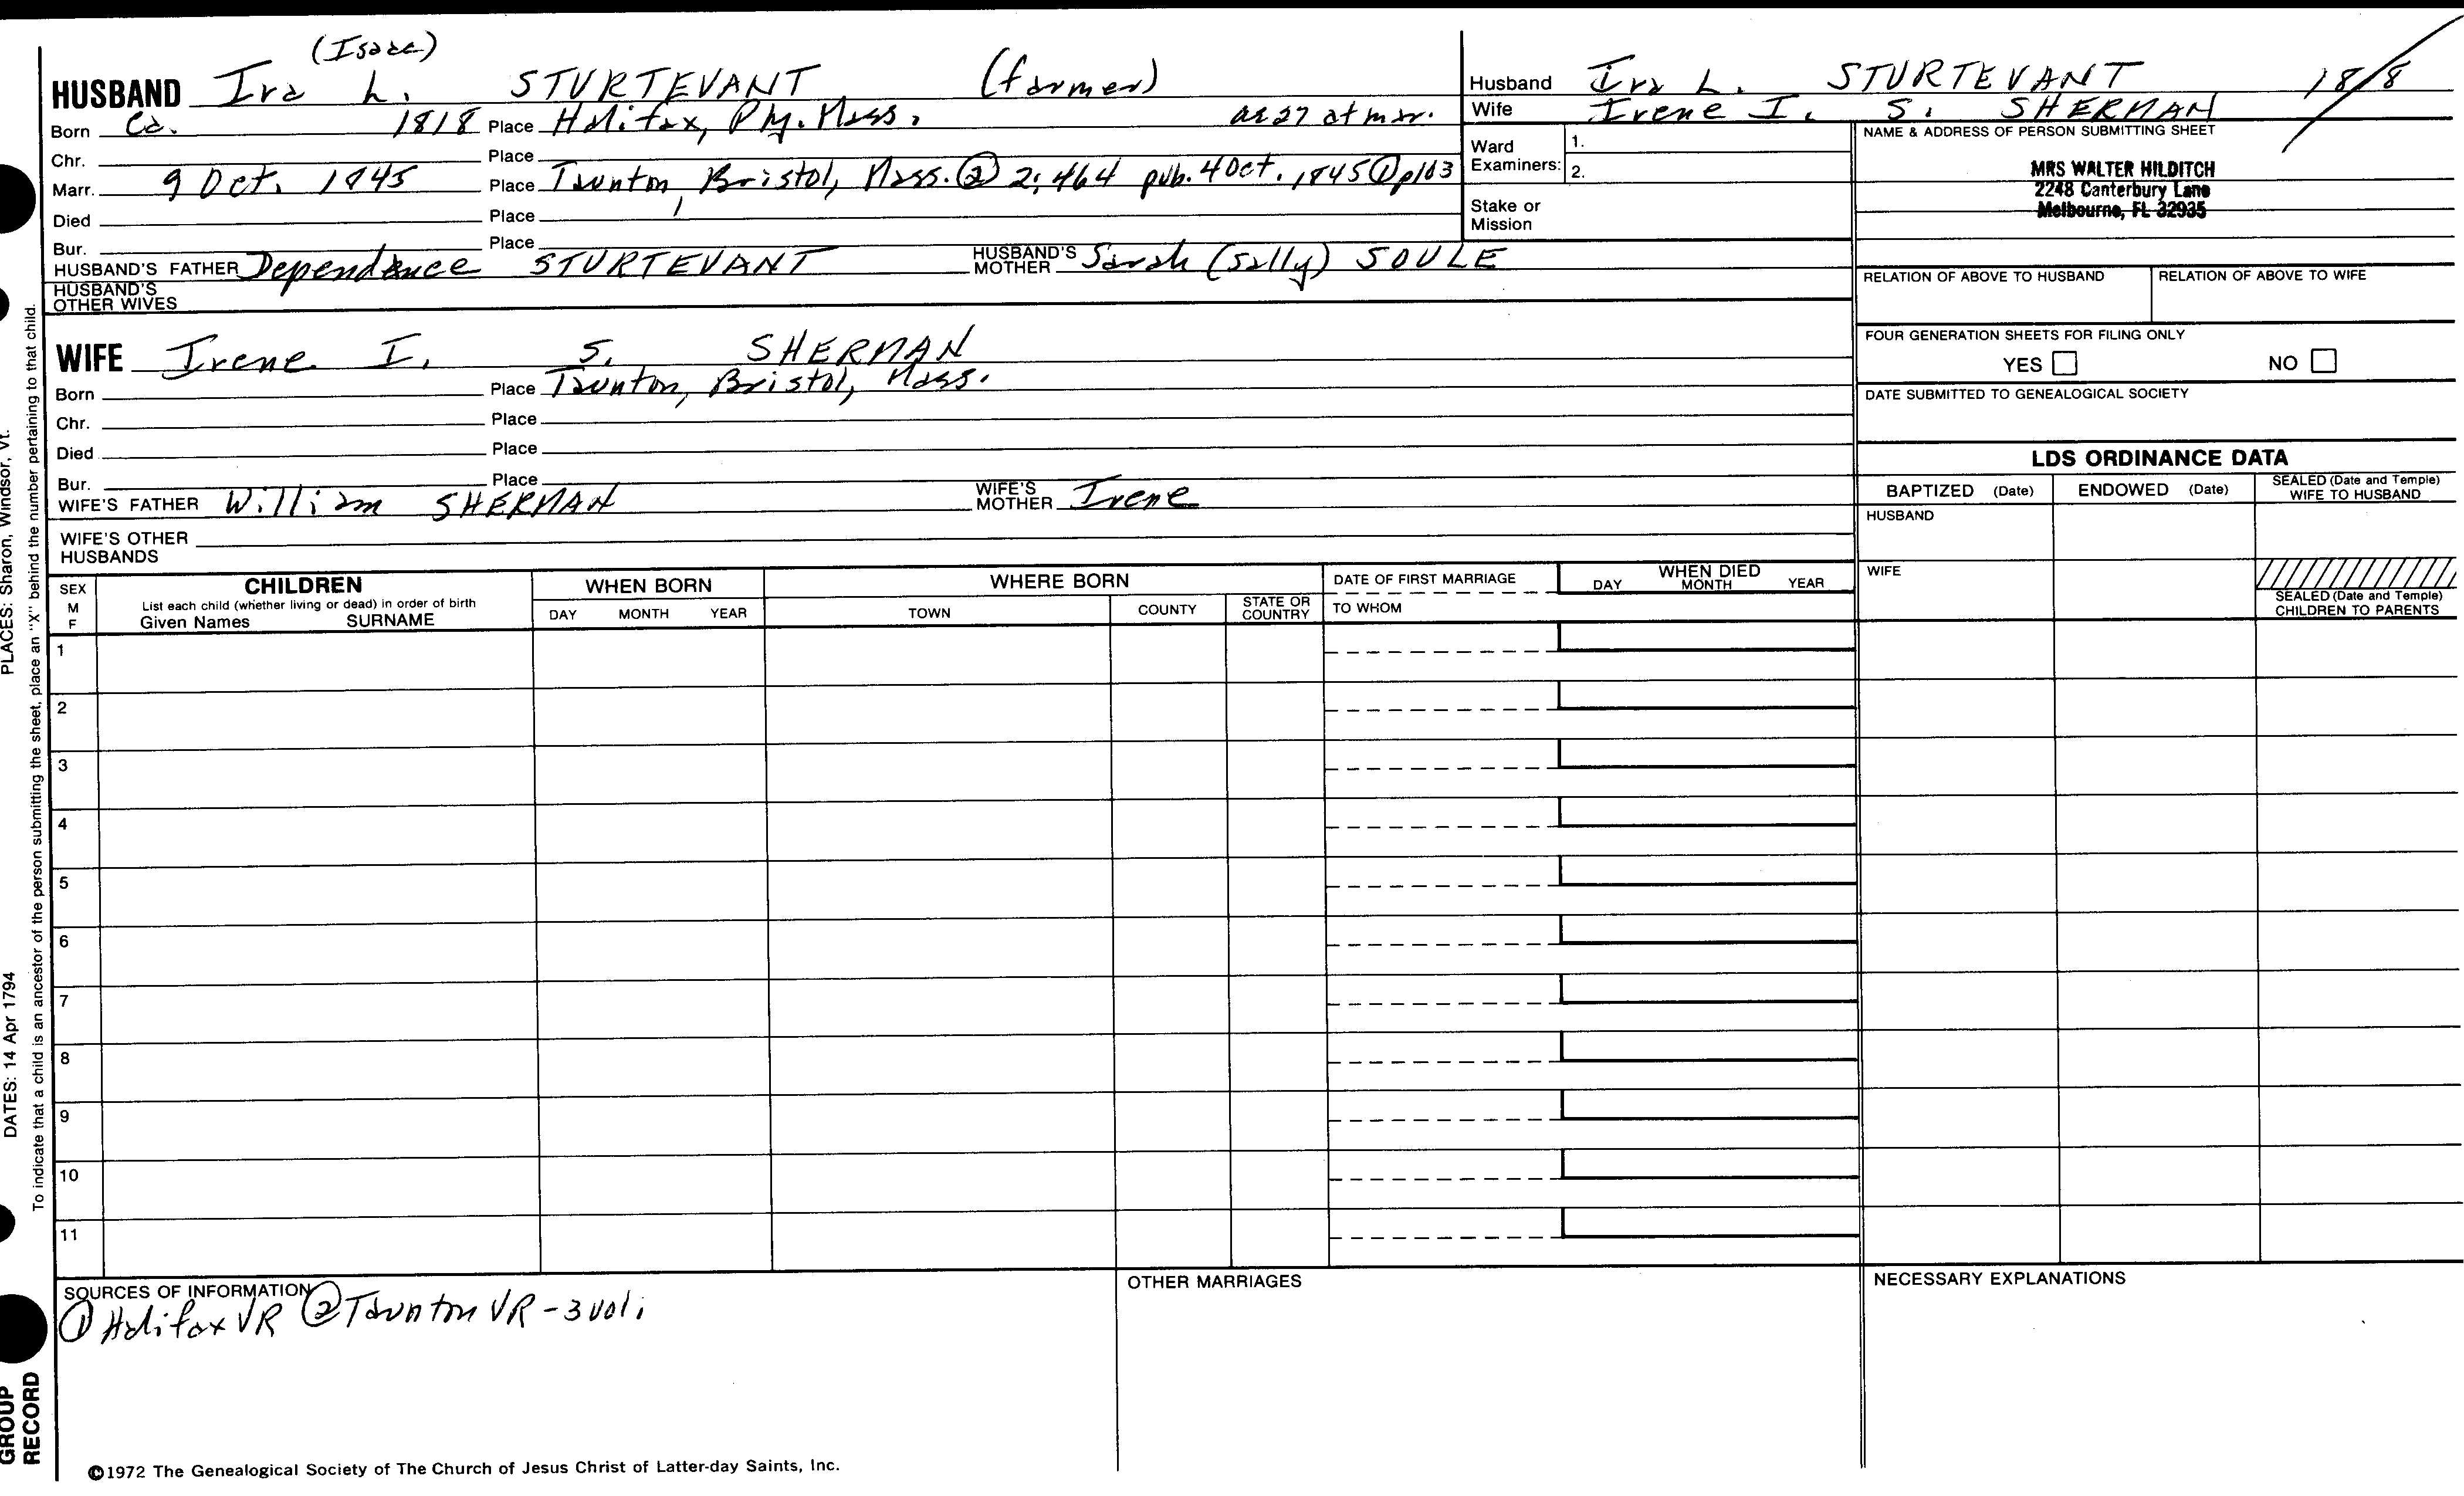 (Isaac)
HUSBAND Ira L. STURTEVANT (farmer)
Born Ca. 1818 Place Halifax, Ply. Mass. ae 27 at mar.
Chr. Place
Marr. 9 Oct. 1845 Place Taunton, Bristol, Mass. ② 2:464 pub. 4 Oct. 1845 ① p163
Died Place
Bur. Place
HUSBAND'S FATHER Dependence STURTEVANT HUSBAND'S MOTHER Sarah (Sally) SOULE
HUSBAND'S OTHER WIVES
WIFE Irene I. S. SHERMAN
Born Place Taunton, Bristol, Mass.
Chr. Place
Died Place
Bur. Place
WIFE'S FATHER William SHERMAN WIFE'S MOTHER Irene
WIFE'S OTHER HUSBANDS
Husband Ira L. STURTEVANT 1818
Wife Irene I. S. SHERMAN
Ward Examiners: 1.
2.
Stake or Mission
NAME & ADDRESS OF PERSON SUBMITTING SHEET
MRS WALTER HILDITCH
2248 Canterbury Lane
Melbourne, FL 32935
RELATION OF ABOVE TO HUSBAND RELATION OF ABOVE TO WIFE
FOUR GENERATION SHEETS FOR FILING ONLY
YES NO
DATE SUBMITTED TO GENEALOGICAL SOCIETY
LDS ORDINANCE DATA
BAPTIZED (Date) ENDOWED (Date) SEALED (Date and Temple) WIFE TO HUSBAND
HUSBAND
WIFE
SEALED (Date and Temple) CHILDREN TO PARENTS
SEX M F CHILDREN WHEN BORN WHERE BORN DATE OF FIRST MARRIAGE WHEN DIED
List each child (whether living or dead) in order of birth
Given Names SURNAME DAY MONTH YEAR TOWN COUNTY STATE OR COUNTRY TO WHOM DAY MONTH YEAR
1
2
3
4
5
6
7
8
9
10
11
SOURCES OF INFORMATION
① Halifax VR ② Taunton VR - 3 vol.
OTHER MARRIAGES
NECESSARY EXPLANATIONS
©1972 The Genealogical Society of The Church of Jesus Christ of Latter-day Saints, Inc.
PLACES: Sharon, Windsor, Vt.
DATES: 14 Apr 1794
To indicate that a child is an ancestor of the person submitting the sheet, place an "X" behind the number pertaining to that child.
GROUP
RECORD